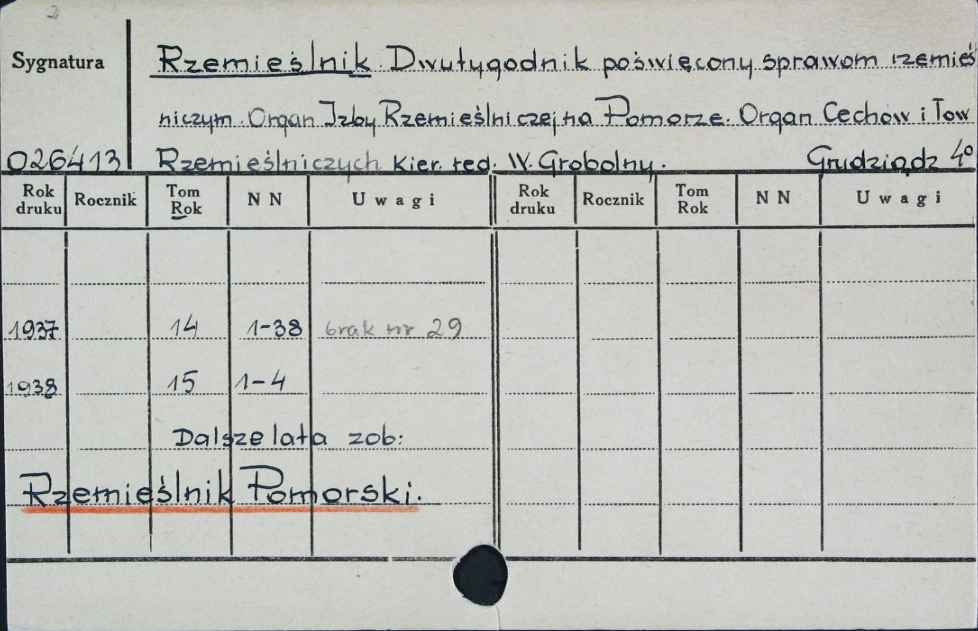 2
Sygnatura
Rzemieślnik. Dwutygodnik poświęcony sprawom rzemieś
niczym. Organ Izby Rzemieślniczej na Pomorze. Organ Cechów i Tow
026413 Rzemieślniczych Kier. red. W. Grobolny. Grudziądz 4°
Rok druku Rocznik Tom Rok N N Uwagi Rok druku Rocznik Tom Rok N N Uwagi
1937 14 1-38 brak nr 29
1938 15 1-4
Dalsze lata zob:
Rzemieślnik Pomorski.